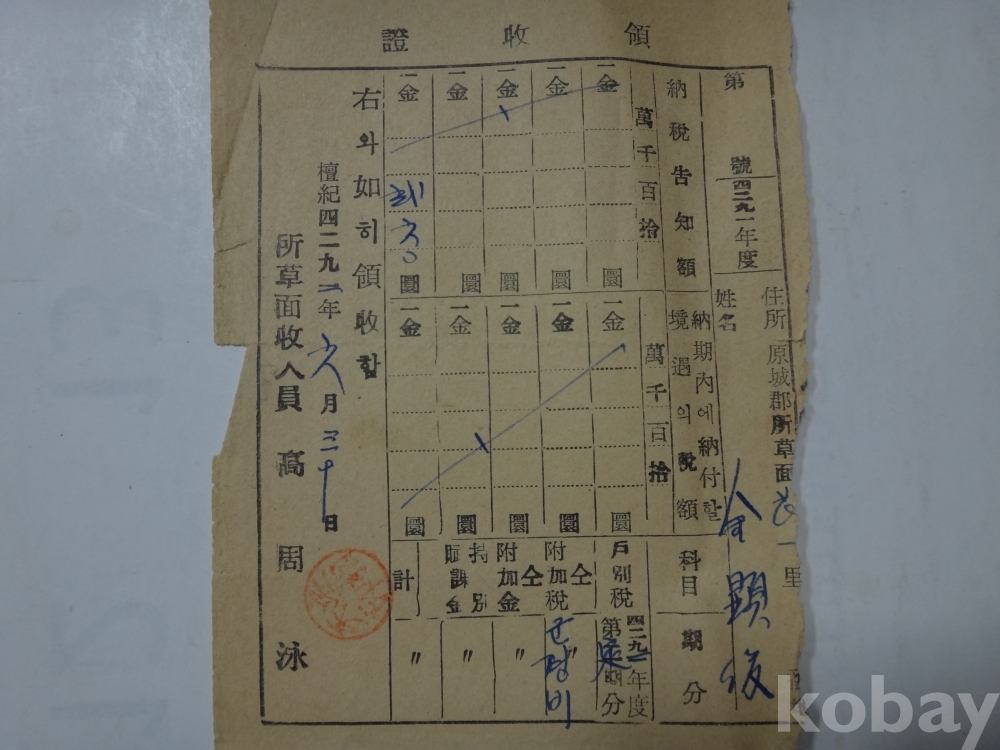 領收證
第 號
四二九一年度
住所 原城郡所草面 一里
姓名 金顯
納稅告知額
納期內에納付할
境過의稅額
科目
期分
萬千百拾
萬千百拾
一金 圜
一金 圜
戶別稅
四二九 年度
第 期分
一金 圜
一金 圜
仝
附加稅
〃
一金 圜
一金 圜
仝
附加金
〃
一金 圜
一金 圜
特別
賦課金
〃
一金 圜
一金 圜
計
〃
右와如히領收함
檀紀四二九 年六月三十日
所草面收入員 高周泳
kobay